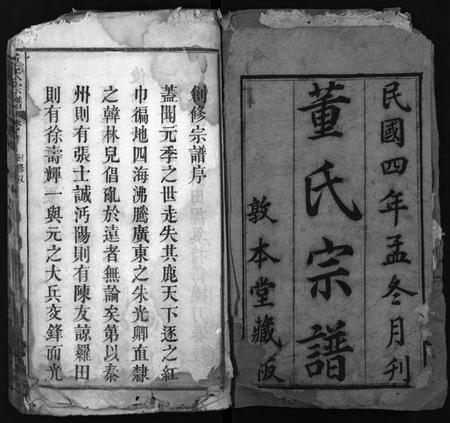 民國四年孟冬月刊
董氏宗譜
敦本堂藏板
創修宗譜序
蓋聞元季之世走失其鹿天下逐之紅
巾徧地四海沸騰廣東之朱光卿直隸
之韓林兒倡亂於遠者無論矣第以泰
州則有張士誠沔陽則有陳友諒羅田
則有徐壽輝一與元之大兵交鋒而光